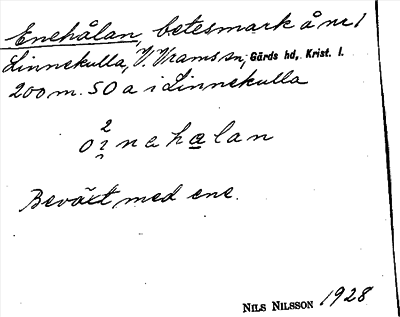 Enehålan, betesmark å nr 1
Linnekulla, V. Vrams sn, Gärds hd, Krist. l.
200 m. SO a i Linnekulla
2
oi̯nehalan
Beväxt med ene.
NILS NILSSON 1928